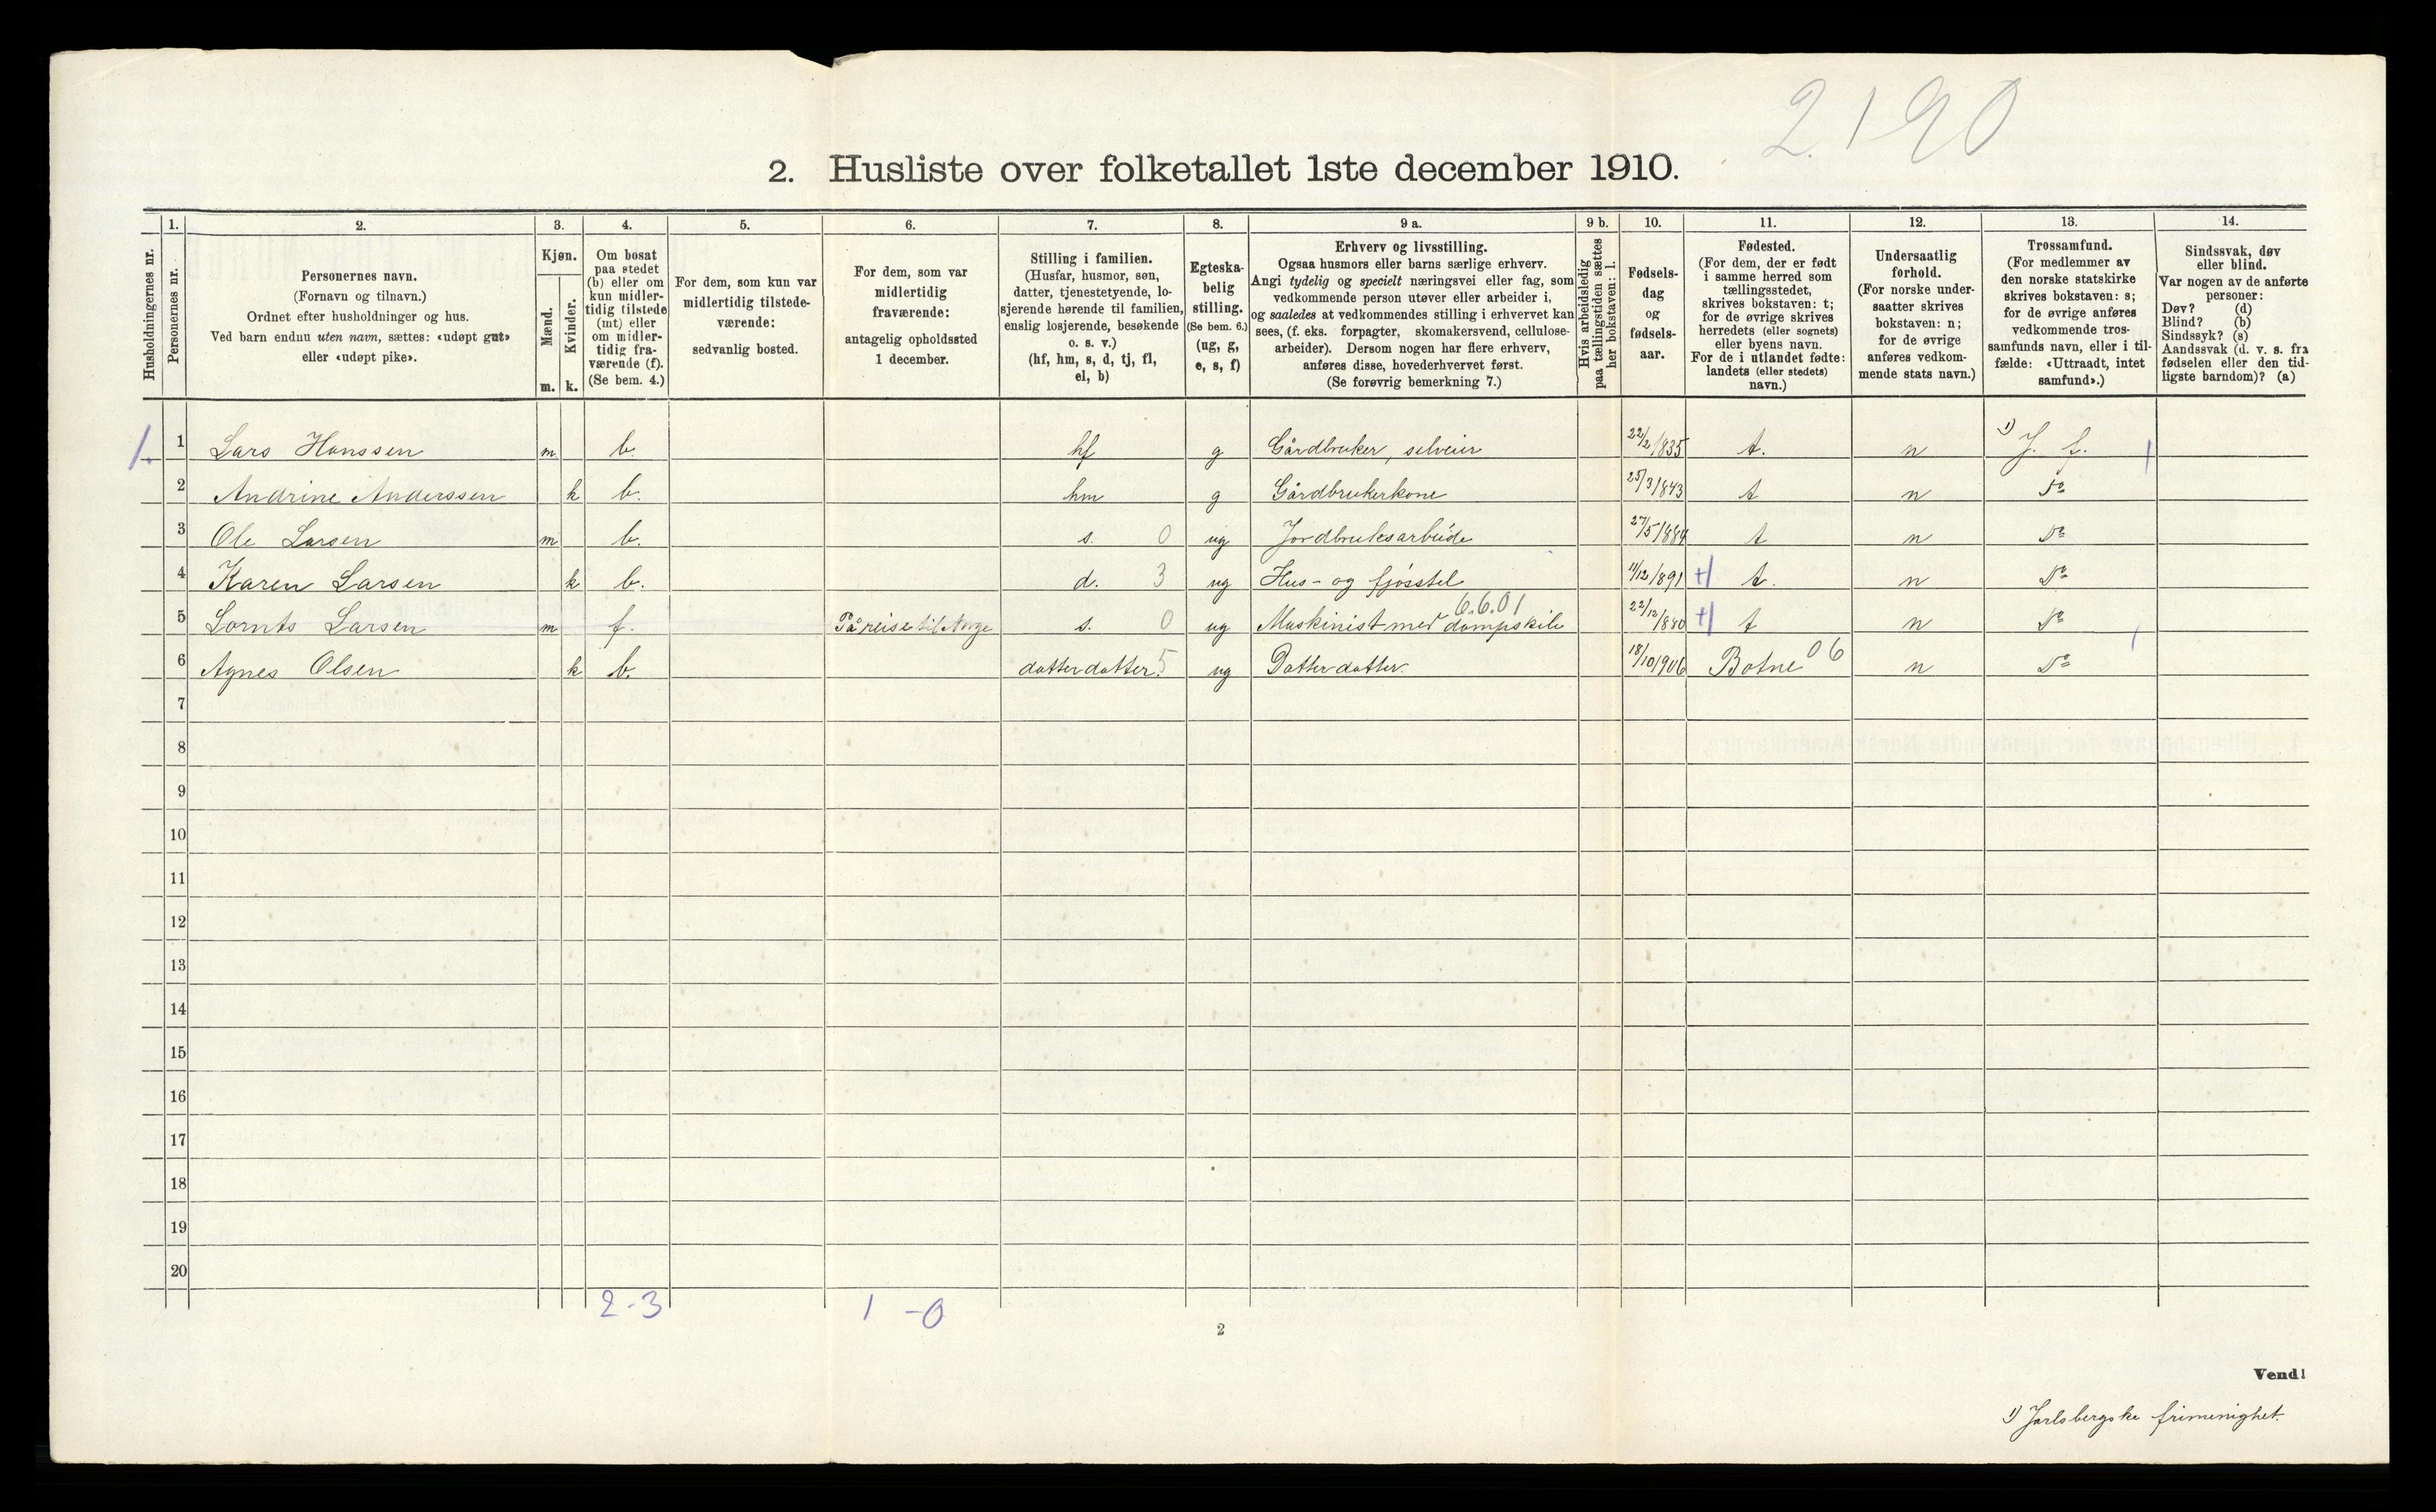 2190
2. Husliste over folketallet 1ste december 1910.
Husholdningernes nr.
1. Personernes nr.
2. Personernes navn.
(Fornavn og tilnavn.)
Ordnet efter husholdninger og hus.
Ved barn endnu uten navn, sættes: «udøpt gut»
eller «udøpt pike».
3. Kjøn.
Mænd. m.
Kvinder. k.
4. Om bosat
paa stedet
(b) eller om
kun midler-
tidig tilstede
(mt) eller
om midler-
tidig fra-
værende (f).
(Se bem. 4.)
5. For dem, som kun var
midlertidig tilstede-
værende:
sedvanlig bosted.
6. For dem, som var
midlertidig
fraværende:
antagelig opholdssted
1 december.
7. Stilling i familien.
(Husfar, husmor, søn,
datter, tjenestetyende, lo-
sjerende hørende til familien,
enslig losjerende, besøkende
o. s. v.)
(hf, hm, s, d, tj, fl,
el, b)
8. Egteska-
belig
stilling.
(Se bem. 6.)
(ug, g,
e, s, f)
9 a. Erhverv og livsstilling.
Ogsaa husmors eller barns særlige erhverv.
Angi tydelig og specielt næringsvei eller fag, som
vedkommende person utøver eller arbeider i,
og saaledes at vedkommendes stilling i erhvervet kan
sees, (f. eks. forpagter, skomakersvend, cellulose-
arbeider). Dersom nogen har flere erhverv,
anføres disse, hovederhvervet først.
(Se forøvrig bemerkning 7.)
9 b. Hvis arbeidsledig
paa tællingstiden sættes
her bokstaven: l.
10. Fødsels-
dag
og
fødsels-
aar.
11. Fødested.
(For dem, der er født
i samme herred som
tællingsstedet,
skrives bokstaven: t;
for de øvrige skrives
herredets (eller sognets)
eller byens navn.
For de i utlandet fødte:
landets (eller stedets)
navn.)
12. Undersaatlig
forhold.
(For norske under-
saatter skrives
bokstaven: n;
for de øvrige
anføres vedkom-
mende stats navn.)
13. Trossamfund.
(For medlemmer av
den norske statskirke
skrives bokstaven: s;
for de øvrige anføres
vedkommende tros-
samfunds navn, eller i til-
fælde: «Uttraadt, intet
samfund».)
14. Sindssvak, døv
eller blind.
Var nogen av de anførte
personer:
Døv? (d)
Blind? (b)
Sindssyk? (s)
Aandssvak (d. v. s. fra
fødselen eller den tid-
ligste barndom)? (a)
1. 1 Lars Hanssen m b. hf g Gårdbruker, selveier 22/2 1835 t. n 1) J. f.
2 Andrine Anderssen k b. hm g Gårdbrukerkone 25/3 1843 t n Do
3 Ole Larsen m b. s. 0 ug Jordbruksarbeide 27/5 1884 t n Do
4 Karen Larsen k b. d. 3 ug Hus- og fjøsstel 11/12 1891 t. n Do
6.6.01
5 Lornts Larsen m f. På reise til Norge s. 0 ug Maskinist med dampskib 22/12 1880 t n Do
6 Agnes Olsen k b. datterdatter. 5 ug Datterdatter. 18/10 1906 Botne 06 n Do
7
8
9
10
11
12
13
14
15
16
17
18
19
20
2-3 1-0
2
Vend!
1) Jarlsbergske frimenighet.